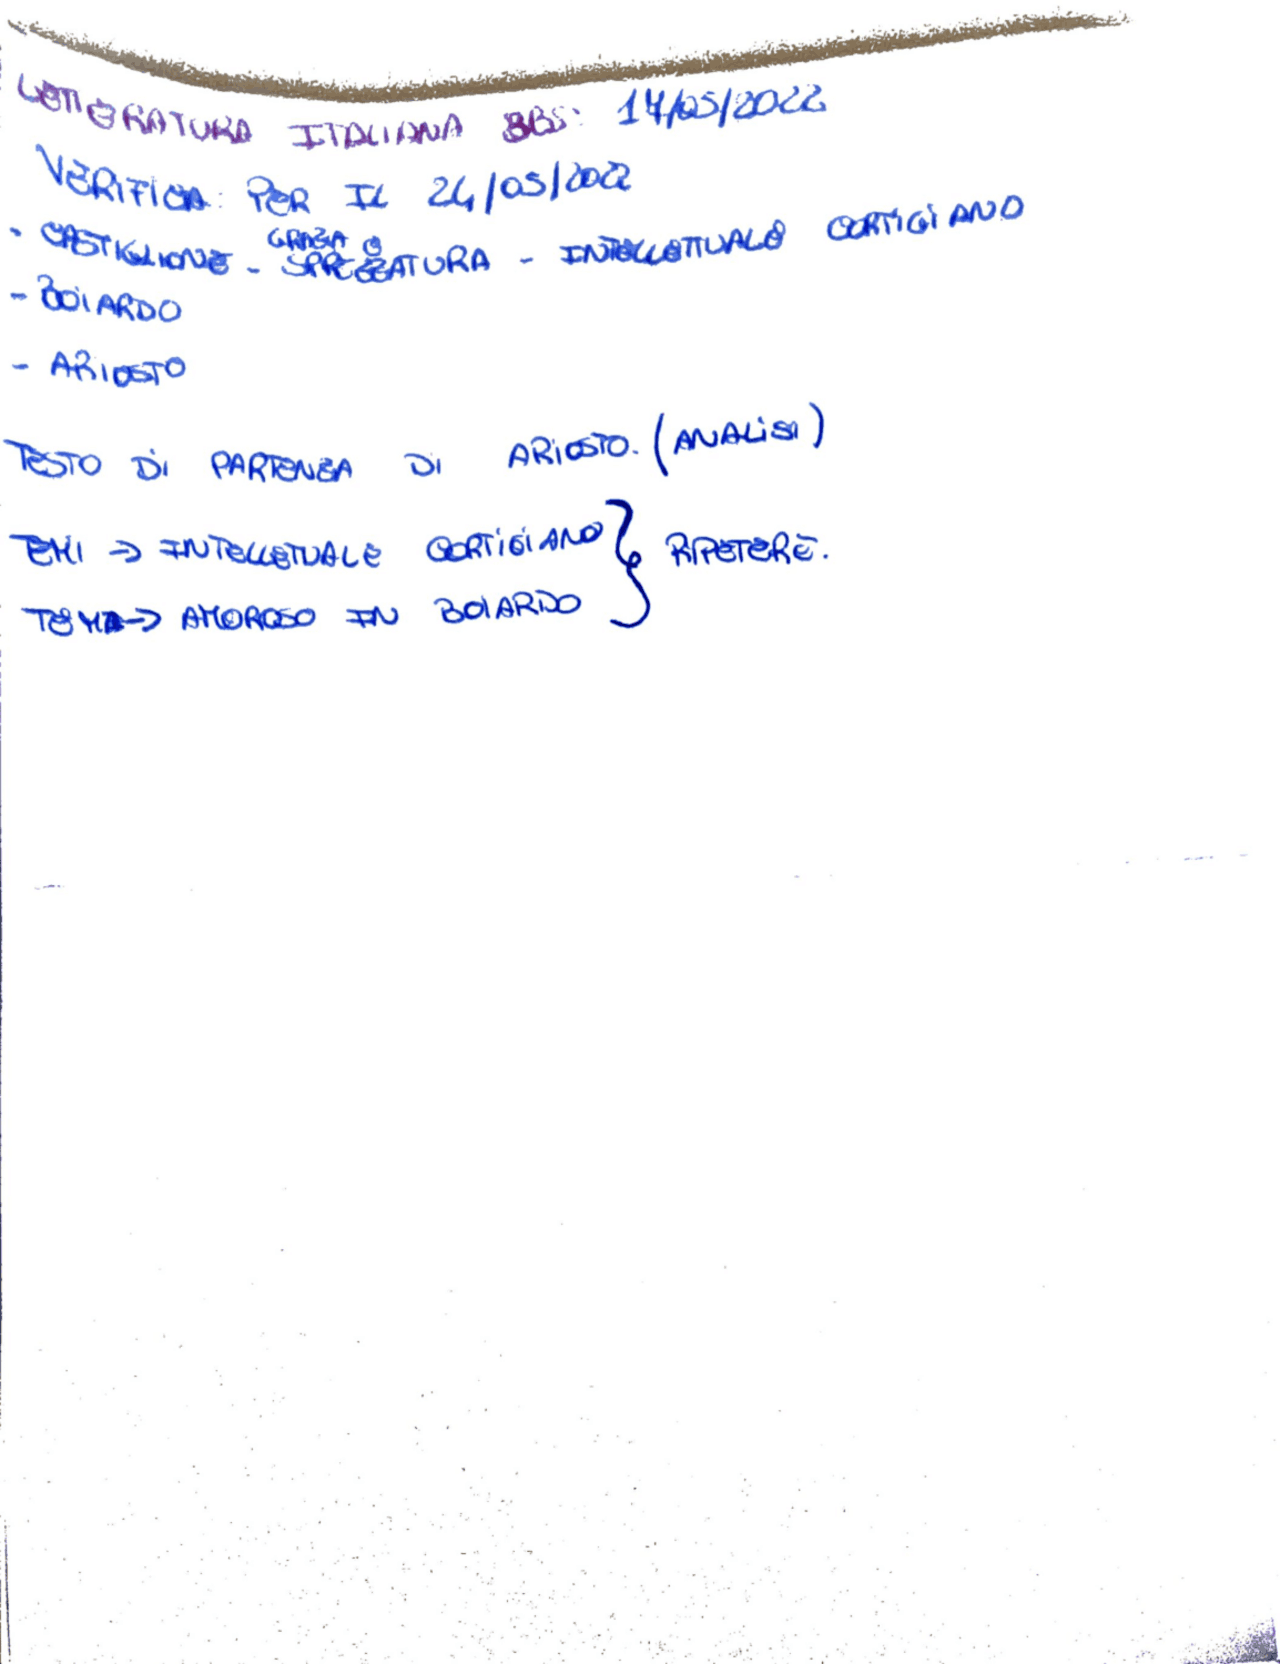 LETTERATURA ITALIANA BBS: 14/05/2022
VERIFICA: PER IL 24/05/2022
- CASTIGLIONE - GRAZIA E SPREZZATURA - INTELLETTUALE CORTIGIANO
- BOIARDO
- ARIOSTO
TESTO DI PARTENZA DI ARIOSTO. (ANALISI)
TEMI → INTELLETUALE CORTIGIANO } RIPETERE.
TEMA → AMOROSO IN BOIARDO